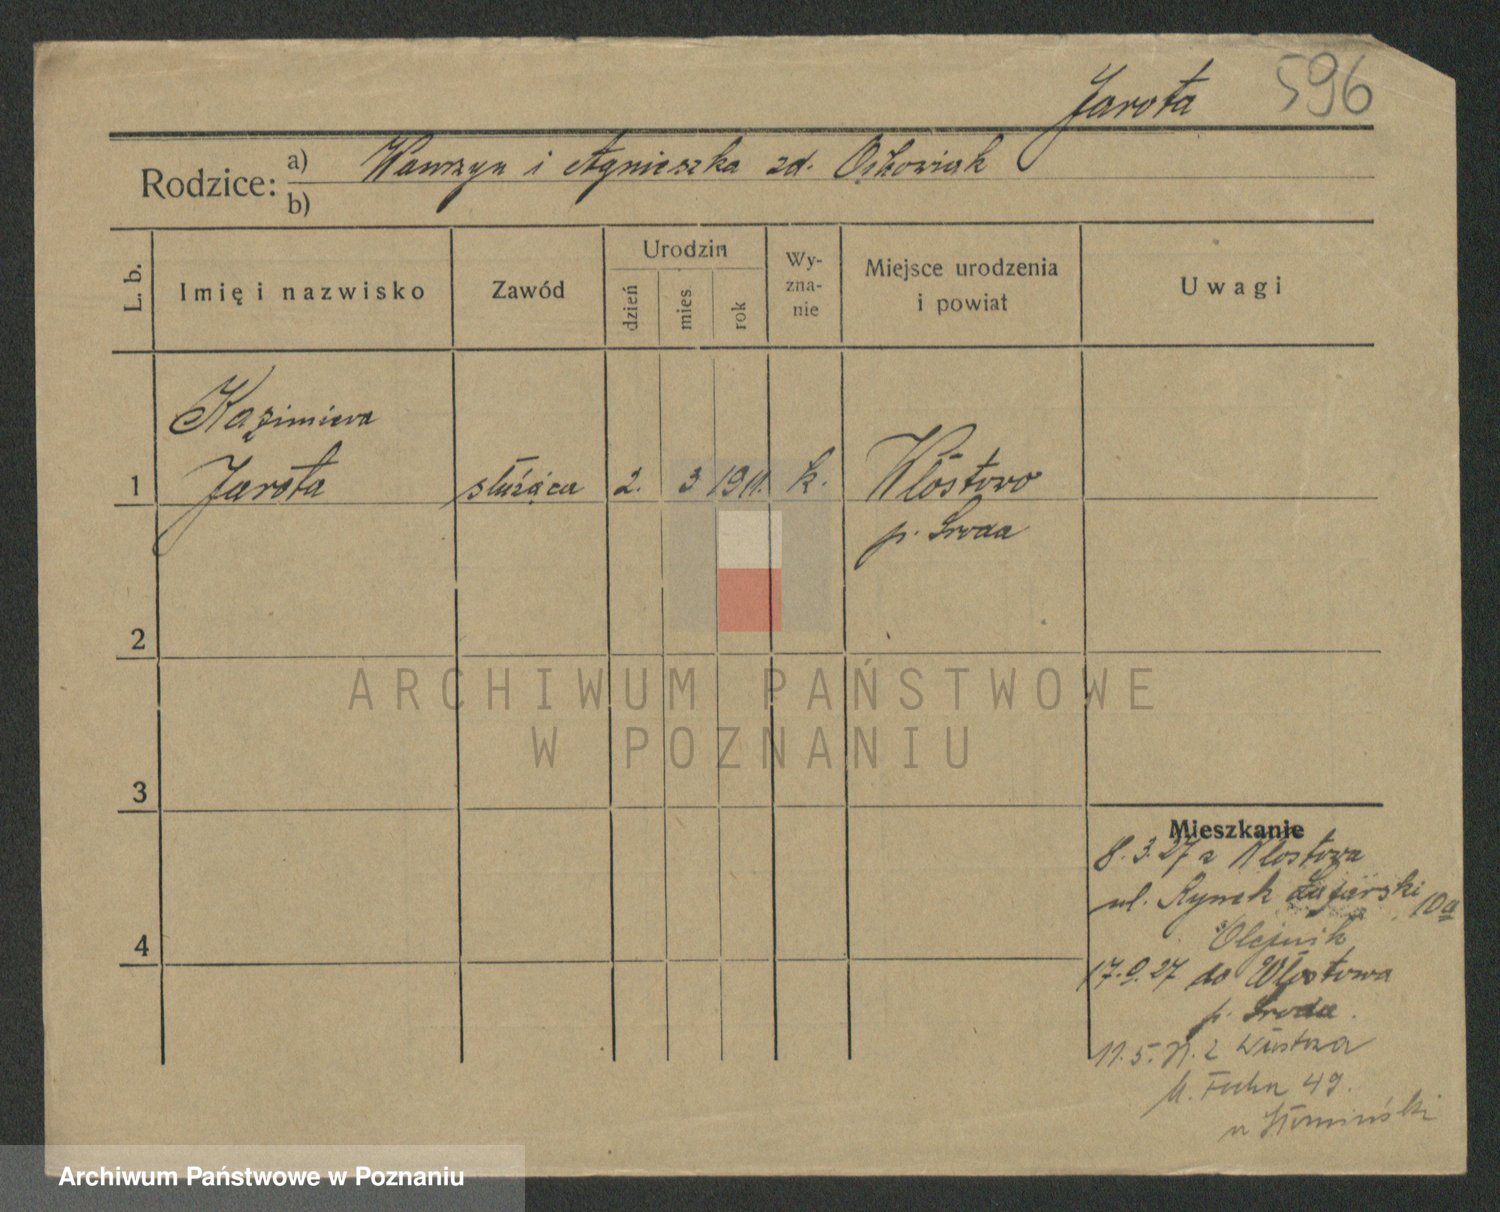 596
Jarota
Rodzice: a) Wawrzyn i Agnieszka zd. Ośkowiak
b)
L. b.
Imię i nazwisko
Zawód
Urodzin
dzień
mies.
rok
Wy-
zna-
nie
Miejsce urodzenia
i powiat
Uwagi
Kazimiera
1 Jarota służąca 2. 3 1911. k. Włostowo
p. Środa
2
3
4
Mieszkanie
8.3.27 z Włostowa
ul. Rynek Łazarski 10a
Olejnik
17.9.27 do Włostowa
p. Środa.
11.5. z
49.
ARCHIWUM PAŃSTWOWE
W POZNANIU
Archiwum Państwowe w Poznaniu